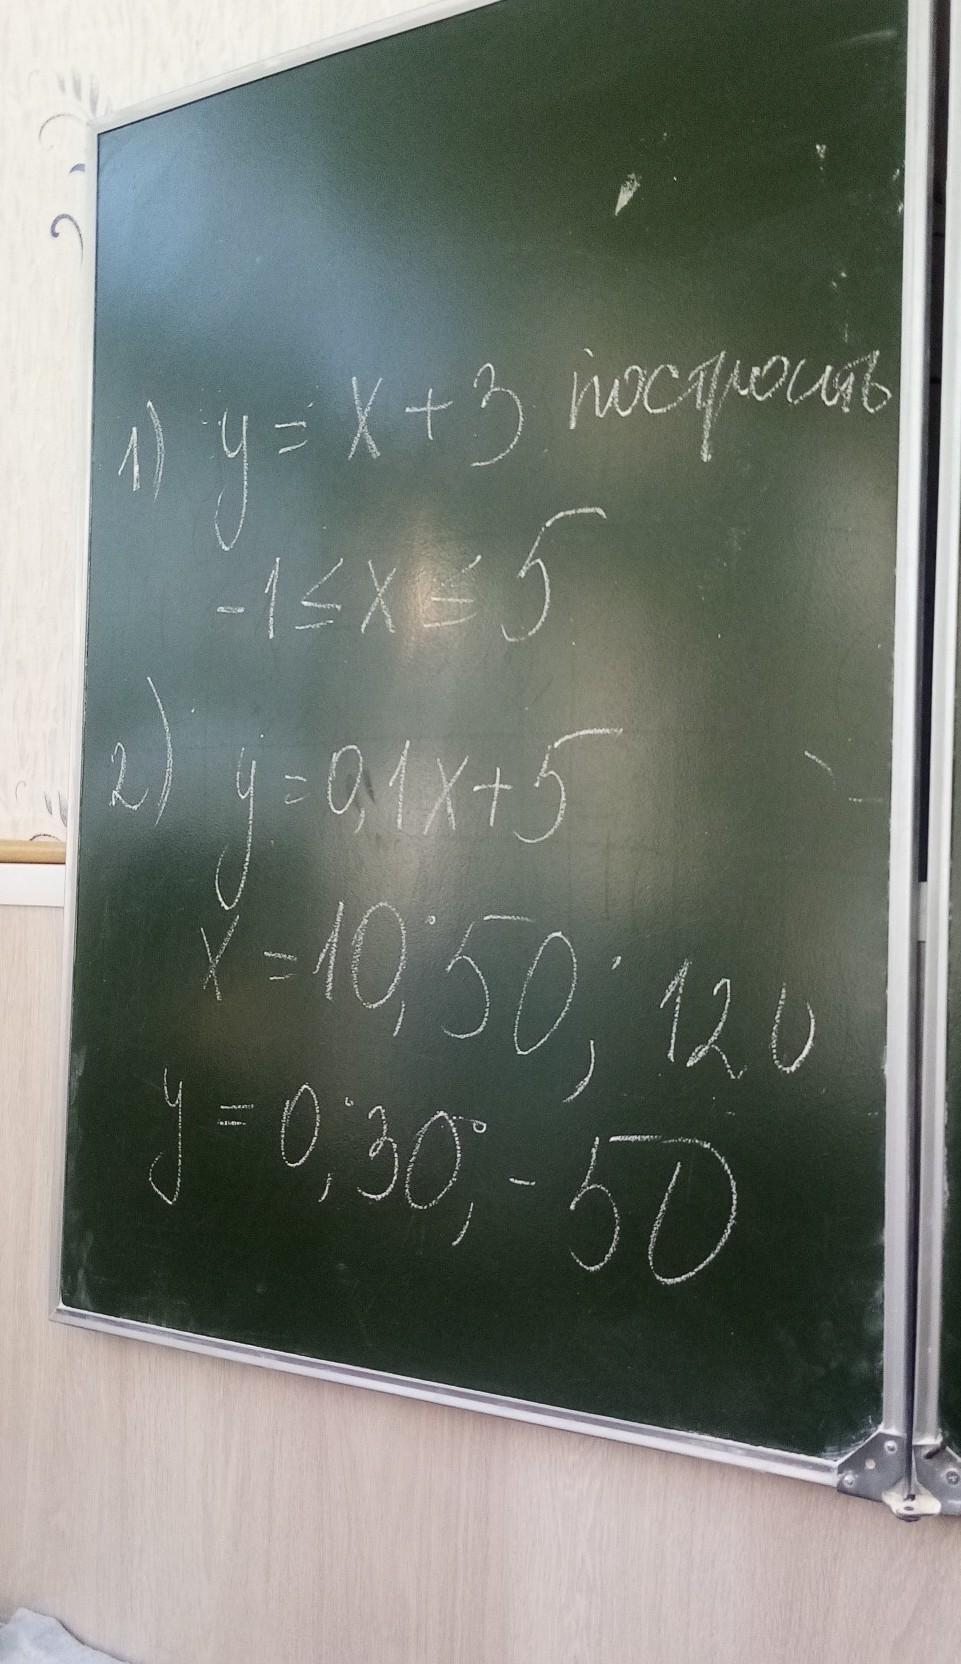 1) y = x + 3 построить
-1 ≤ x ≤ 5
2) y = 0,1x + 5
x = 10; 50; 120
y = 0; 30; -50